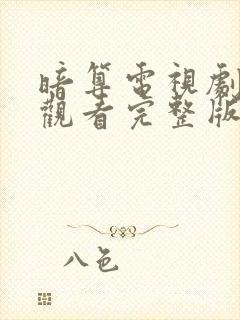 暗算電視劇
觀看完整版
八色